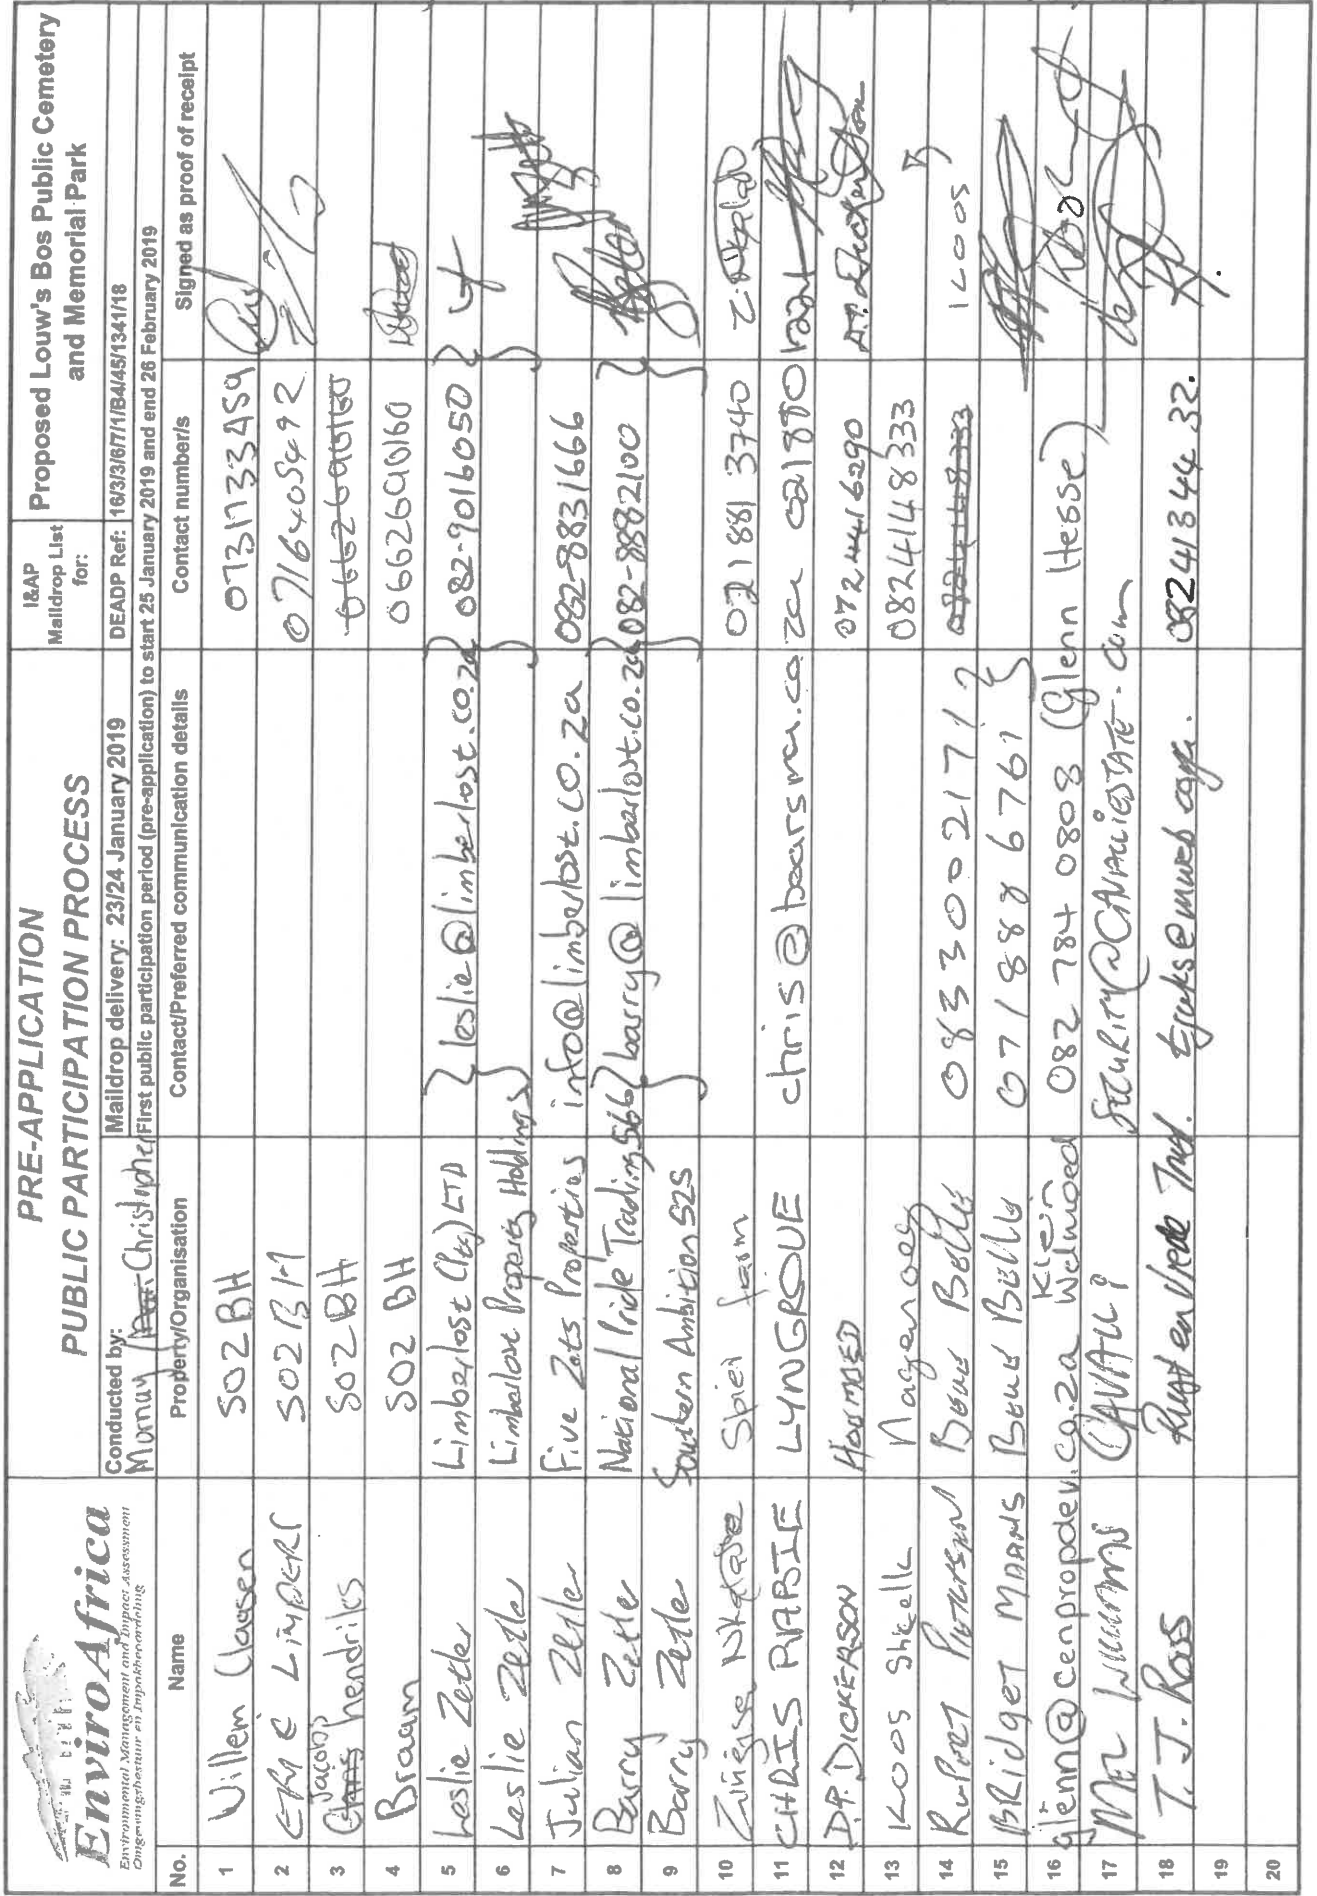 EnviroAfrica
Environmental Management and Impact Assessment
Omgewingsbestuur en Impakbeoordeling
PRE-APPLICATION
PUBLIC PARTICIPATION PROCESS
I&AP
Maildrop List
for:
Proposed Louw's Bos Public Cemetery
and Memorial Park
Conducted by:
Christopher
Maildrop delivery: 23/24 January 2019
DEADP Ref: 16/3/3/6/7/1/B4/45/1341/18
First public participation period (pre-application) to start 25 January 2019 and end 26 February 2019
No. Name Property/Organisation Contact/Preferred communication details Contact number/s Signed as proof of receipt
1 Willem Claasen SO2BH 0731733459
2 SO2BH 0716405492
3 Jacobs Hendriks SO2BH 0662690160
4 Braam SO2 BH 0662690160
5 Leslie Zetler Limberlost (Pty) LTD leslie@limberlost.co.za 082-9016050
6 Leslie Zetler Limberlost Property Holdings
7 Julian Zetler Five Zets Properties info@limberlost.co.za 082-8831666
8 Barry Zetler National Pride Trading 566 barry@limberlost.co.za 082-8882100
9 Barry Zetler Southern Ambition 525
10 Spier farm 021 881 3740
11 CHRIS RABIE LYNGROVE chris@bearsma.co.za
12 D.P. DICKERSON 0724416290
13 Koos 0824148333 Koos
14 0833002171
15 BRIDGET MAANS 0718886761
16 glenn@cenpropdev.co.za Klein Welmoed 082 784 0808 (Glenn Hesse)
17 MEL WILLIAMS CAVALLI SECURITY@CAVALLIESTATE.com
18 T.J. Roos Rust en Vrede 0824134432.
19
20